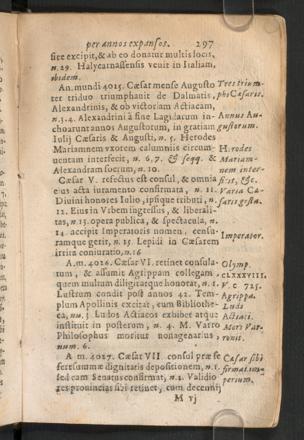 per annos expansos. 297
site excipit, & ab eo donatur multis locis,
n. 29. Halycarnassensis venit in Italiam,
ibidem.
An. mundi 4025. Cæsar mense Augusto
ter triduo triumphavit de Dalmatis,
Alexandrinis, & ob victoriam Actiacam,
n. 3.4. Alexandrini à fine Lagidarum in-
choarunt annos Augustorum, in gratiam
Iulij Cæsaris & Augusti, n. 5. Herodes
Mariamnem vxorem calumniis circum-
uentam interfecit, n. 6.7. & seqq. &
Alexandram socrum, n. 10.
Cæsar V. refectus est consul, & omnia
eius acta iuramento confirmata, n. 11.
Diuini honores Iulio, ipsique tributi, n.
12. Eius in Vrbem ingressus, & liberali-
tas, n. 13. opera publica, & spectacula, n.
14. accipit Imperatoris nomen, censu-
ramque gerit, n. 15. Lepidi in Cæsarem
irrita coniuratio, n. 16
A.m. 4026. Cæsar VI. retinet consula-
tum, & assumit Agrippam collegam
quem multum diligit atque honorat, n. 1.
Lustrum condit post annos 42. Tem-
plum Apollinis excitat, cum Bibliothe-
ca, nu. 3. Ludos Actiacos exhibet atque
instituit in posterum, n. 4. M. Varro
Philosophus moritur nonagenarius
num. 6.
A.m. 4027. Cæsar VII. consul præ se
fert summæ dignitatis depositionem, n. 1.
sed eam Senatus confirmat, n. 2. Validio
res prouincias sibi retinet, cum decernif
M vj
Tres trium-
phi Cæsaris.
Annus Au-
gustorum.
Herodes
Mariam-
nem inter-
ficit, &c.
Varia Cæ-
saris gesta.
Imperator.
Olymp.
CLXXXVIII.
V. c 725.
Agrippa.
Ludi
Actiaci.
Mors Var-
ronis.
Cæsar sibi
firmat im-
perium.